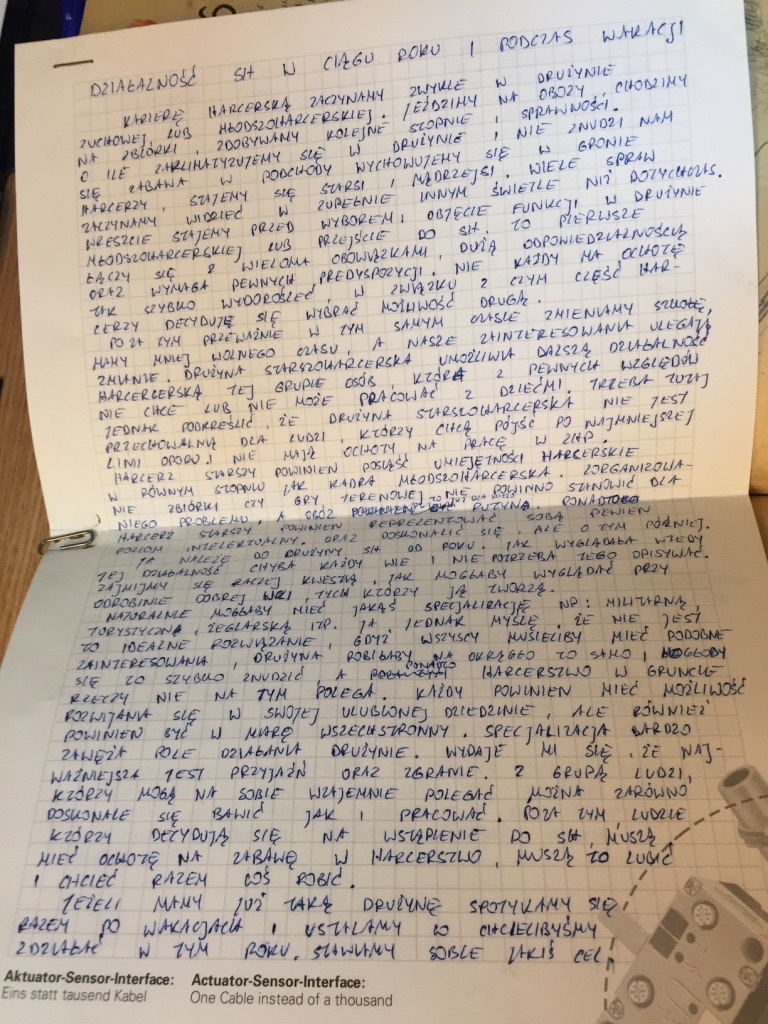 DZIAŁALNOŚĆ SH W CIĄGU ROKU I PODCZAS WAKACJI
KARIERĘ HARCERSKĄ ZACZYNAMY ZWYKLE W DRUŻYNIE
ZUCHOWEJ LUB MŁODSZOHARCERSKIEJ. JEŹDZIMY NA OBOZY, CHODZIMY
NA ZBIÓRKI, ZDOBYWAMY KOLEJNE STOPNIE I SPRAWNOŚCI.
O ILE ZAKLIMATYZUJEMY SIĘ W DRUŻYNIE I NIE ZNUDZI NAM
SIĘ ZABAWA W PODCHODY WYCHOWUJEMY SIĘ W GRONIE
HARCERZY, STAJEMY SIĘ STARSI I MĄDRZEJSI. WIELE SPRAW
ZACZYNAMY WIDZIEĆ W ZUPEŁNIE INNYM ŚWIETLE NIŻ DOTYCHCZAS.
WRESZCIE STAJEMY PRZED WYBOREM: OBJĘCIE FUNKCJI W DRUŻYNIE
MŁODSZOHARCERSKIEJ LUB PRZEJŚCIE DO SH. TO PIERWSZE
ŁĄCZY SIĘ Z WIELOMA OBOWIĄZKAMI, DUŻĄ ODPOWIEDZIALNOŚCIĄ
ORAZ WYMAGA PEWNYCH PREDYSPOZYCJI. NIE KAŻDY MA OCHOTĘ
TAK SZYBKO WYDOROŚLEĆ, W ZWIĄZKU Z CZYM CZĘŚĆ HAR-
CERZY DECYDUJE SIĘ WYBRAĆ MOŻLIWOŚĆ DRUGĄ.
POZA TYM PRZEWAŻNIE W TYM SAMYM CZASIE ZMIENIAMY SZKOŁĘ,
MAMY MNIEJ WOLNEGO CZASU, A NASZE ZAINTERESOWANIA ULEGAJĄ
ZMIANIE. DRUŻYNA STARSZOHARCERSKA UMOŻLIWIA DALSZĄ DZIAŁALNOŚĆ
HARCERCERSKĄ TEJ GRUPIE OSÓB, KTÓRA Z PEWNYCH WZGLĘDÓW
NIE CHCE LUB NIE MOŻE PRACOWAĆ Z DZIEĆMI. TRZEBA TUTAJ
JEDNAK PODKREŚLIĆ, ŻE DRUŻYNA STARSZOHARCERSKA NIE JEST
PRZECHOWALNIĄ DLA LUDZI, KTÓRZY CHCĄ PÓJŚĆ PO NAJMNIEJSZEJ
LINII OPORU I NIE MAJĄ OCHOTY NA PRACĘ W ZHP.
HARCERZ STARSZY POWINIEN POSIĄŚĆ UMIEJĘTNOŚCI HARCERSKIE
W RÓWNYM STOPNIU JAK KADRA MŁODSZOHARCERSKA. ZORGANIZOWA-
NIE ZBIÓRKI CZY GRY TERENOWEJ NIE POWINNO STANOWIĆ DLA
NIEGO PROBLEMU, A OBÓZ TO JUŻ RUTYNA. PONADTO
HARCERZ STARSZY POWINIEN REPREZENTOWAĆ SOBĄ PEWIEN
POZIOM INTELEKTUALNY. ORAZ DOSKONALIĆ SIĘ. ALE O TYM PÓŹNIEJ.
JA NALEŻĘ DO DRUŻYNY SH OD ROKU. JAK WYGLĄDAŁA WTEDY
JEJ DZIAŁALNOŚĆ CHYBA KAŻDY WIE I NIE POTRZEBA TEGO OPISYWAĆ.
ZAJMIJMY SIĘ RACZEJ KWESTIĄ, JAK MOGŁABY WYGLĄDAĆ PRZY
ODROBINIE DOBREJ WOLI, TYCH KTÓRZY JĄ TWORZĄ.
NATURALNIE MOGŁABY MIEĆ JAKĄŚ SPECJALIZACJĘ NP: MILITARNĄ,
TURYSTYCZNĄ, ŻEGLARSKĄ ITP. JA JEDNAK MYŚLĘ, ŻE NIE JEST
TO IDEALNE ROZWIĄZANIE, GDYŻ WSZYSCY MUSIELIBY MIEĆ PODOBNE
ZAINTERESOWANIA, DRUŻYNA ROBIŁABY NA OKRĄGŁO TO SAMO, MOGŁOBY
SIĘ TO SZYBKO ZNUDZIĆ, A PONADTO HARCERSTWO W GRUNCIE
RZECZY NIE NA TYM POLEGA. KAŻDY POWINIEN MIEĆ MOŻLIWOŚĆ
ROZWIJANIA SIĘ W SWOJEJ ULUBIONEJ DZIEDZINIE, ALE RÓWNIEŻ
POWINIEN BYĆ W MIARĘ WSZECHSTRONNY. SPECJALIZACJA BARDZO
ZAWĘŻA POLE DZIAŁANIA DRUŻYNIE. WYDAJE MI SIĘ, ŻE NAJ-
WAŻNIEJSZA JEST PRZYJAŹŃ ORAZ ZGRANIE. Z GRUPĄ LUDZI,
KTÓRZY MOGĄ NA SOBIE WZAJEMNIE POLEGAĆ MOŻNA ZARÓWNO
DOSKONALE SIĘ BAWIĆ JAK I PRACOWAĆ. POZA TYM, LUDZIE
KTÓRZY DECYDUJĄ SIĘ NA WSTĄPIENIE DO SH, MUSZĄ
MIEĆ OCHOTĘ NA ZABAWĘ W HARCERSTWO, MUSZĄ TO LUBIĆ
I CHCIEĆ RAZEM COŚ ROBIĆ.
JEŻELI MAMY JUŻ TAKĄ DRUŻYNĘ SPOTYKAMY SIĘ
RAZEM PO WAKACJACH I USTALAMY CO CHCIELIBYŚMY
ZDZIAŁAĆ W TYM ROKU. STAWIAMY SOBIE JAKIŚ CEL
Aktuator-Sensor-Interface: Actuator-Sensor-Interface:
Eins statt tausend Kabel One Cable instead of a thousand